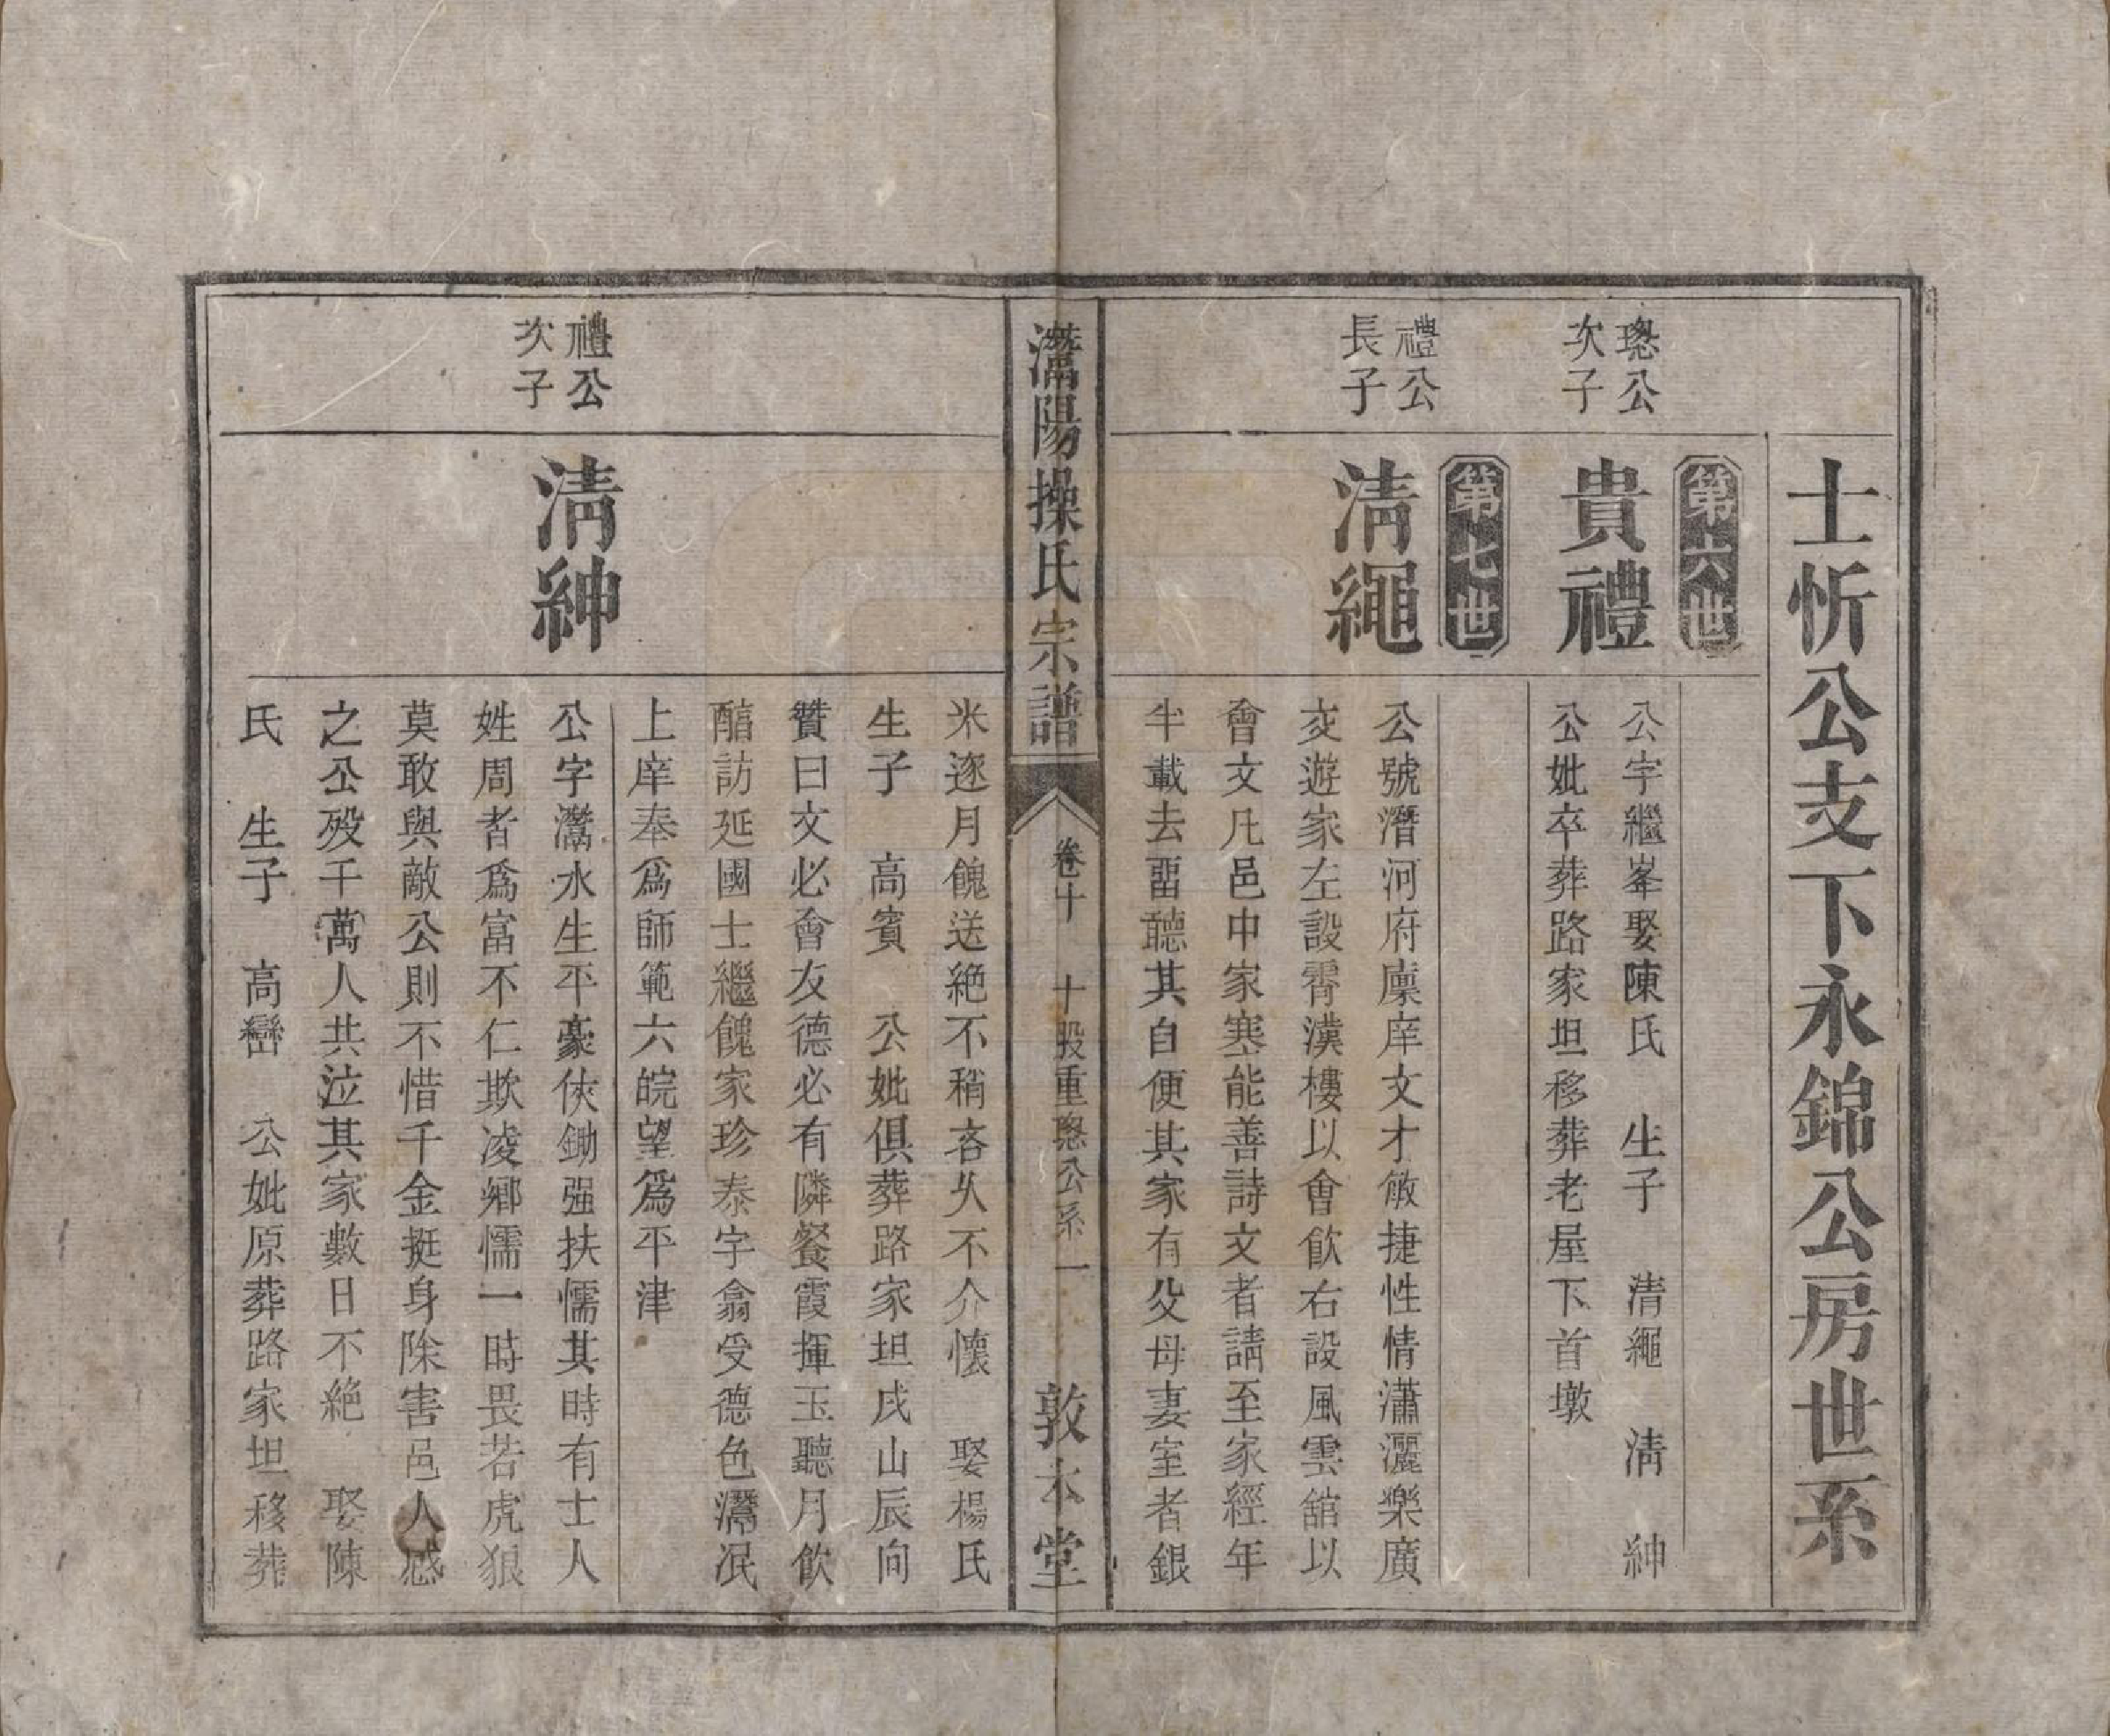 士忻公支下永錦公房世系
第六世
璁公
次子
貴禮
公字繼峯娶陳氏　生子　清繩　清　紳
公妣卒葬路家坦移葬老屋下首墩
第七世
禮公
長子
清繩
公號潛河府廩庠文才敏捷性情瀟灑樂廣
交遊家左設霽漢樓以會飲右設風雲舘以
會文凡邑中家塞能善詩文者請至家經年
半載去畱聽其自便其家有父母妻室者銀
灊陽操氏宗譜
卷十　十股重璁公系　一
敦本堂
米逐月餽送絶不稍吝久不介懷　娶楊氏
生子　高賓　公妣俱葬路家坦戌山辰向
贊曰文必會友德必有隣餐霞揮玉聽月飲
醕訪延國士繼餽家珍泰宇翕受德色灊泯
上庠奉爲師範六皖望爲平津
禮公
次子
清紳
公字灊水生平豪俠鋤强扶懦其時有士人
姓周者爲富不仁欺凌鄉懦一時畏若虎狼
莫敢與敵公則不惜千金挺身除害邑人感
之公殁千萬人共泣其家數日不絶　娶陳
氏　生子　高巒　公妣原葬路家坦移葬